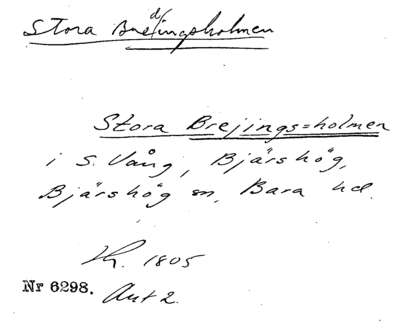 Stora Bredingsholmen
Stora Brejings=holmen
i S. Vång, Bjärshög,
Bjärshög sn, Bara hd.
Kh. 1805
Nr 6298. Akt 2.